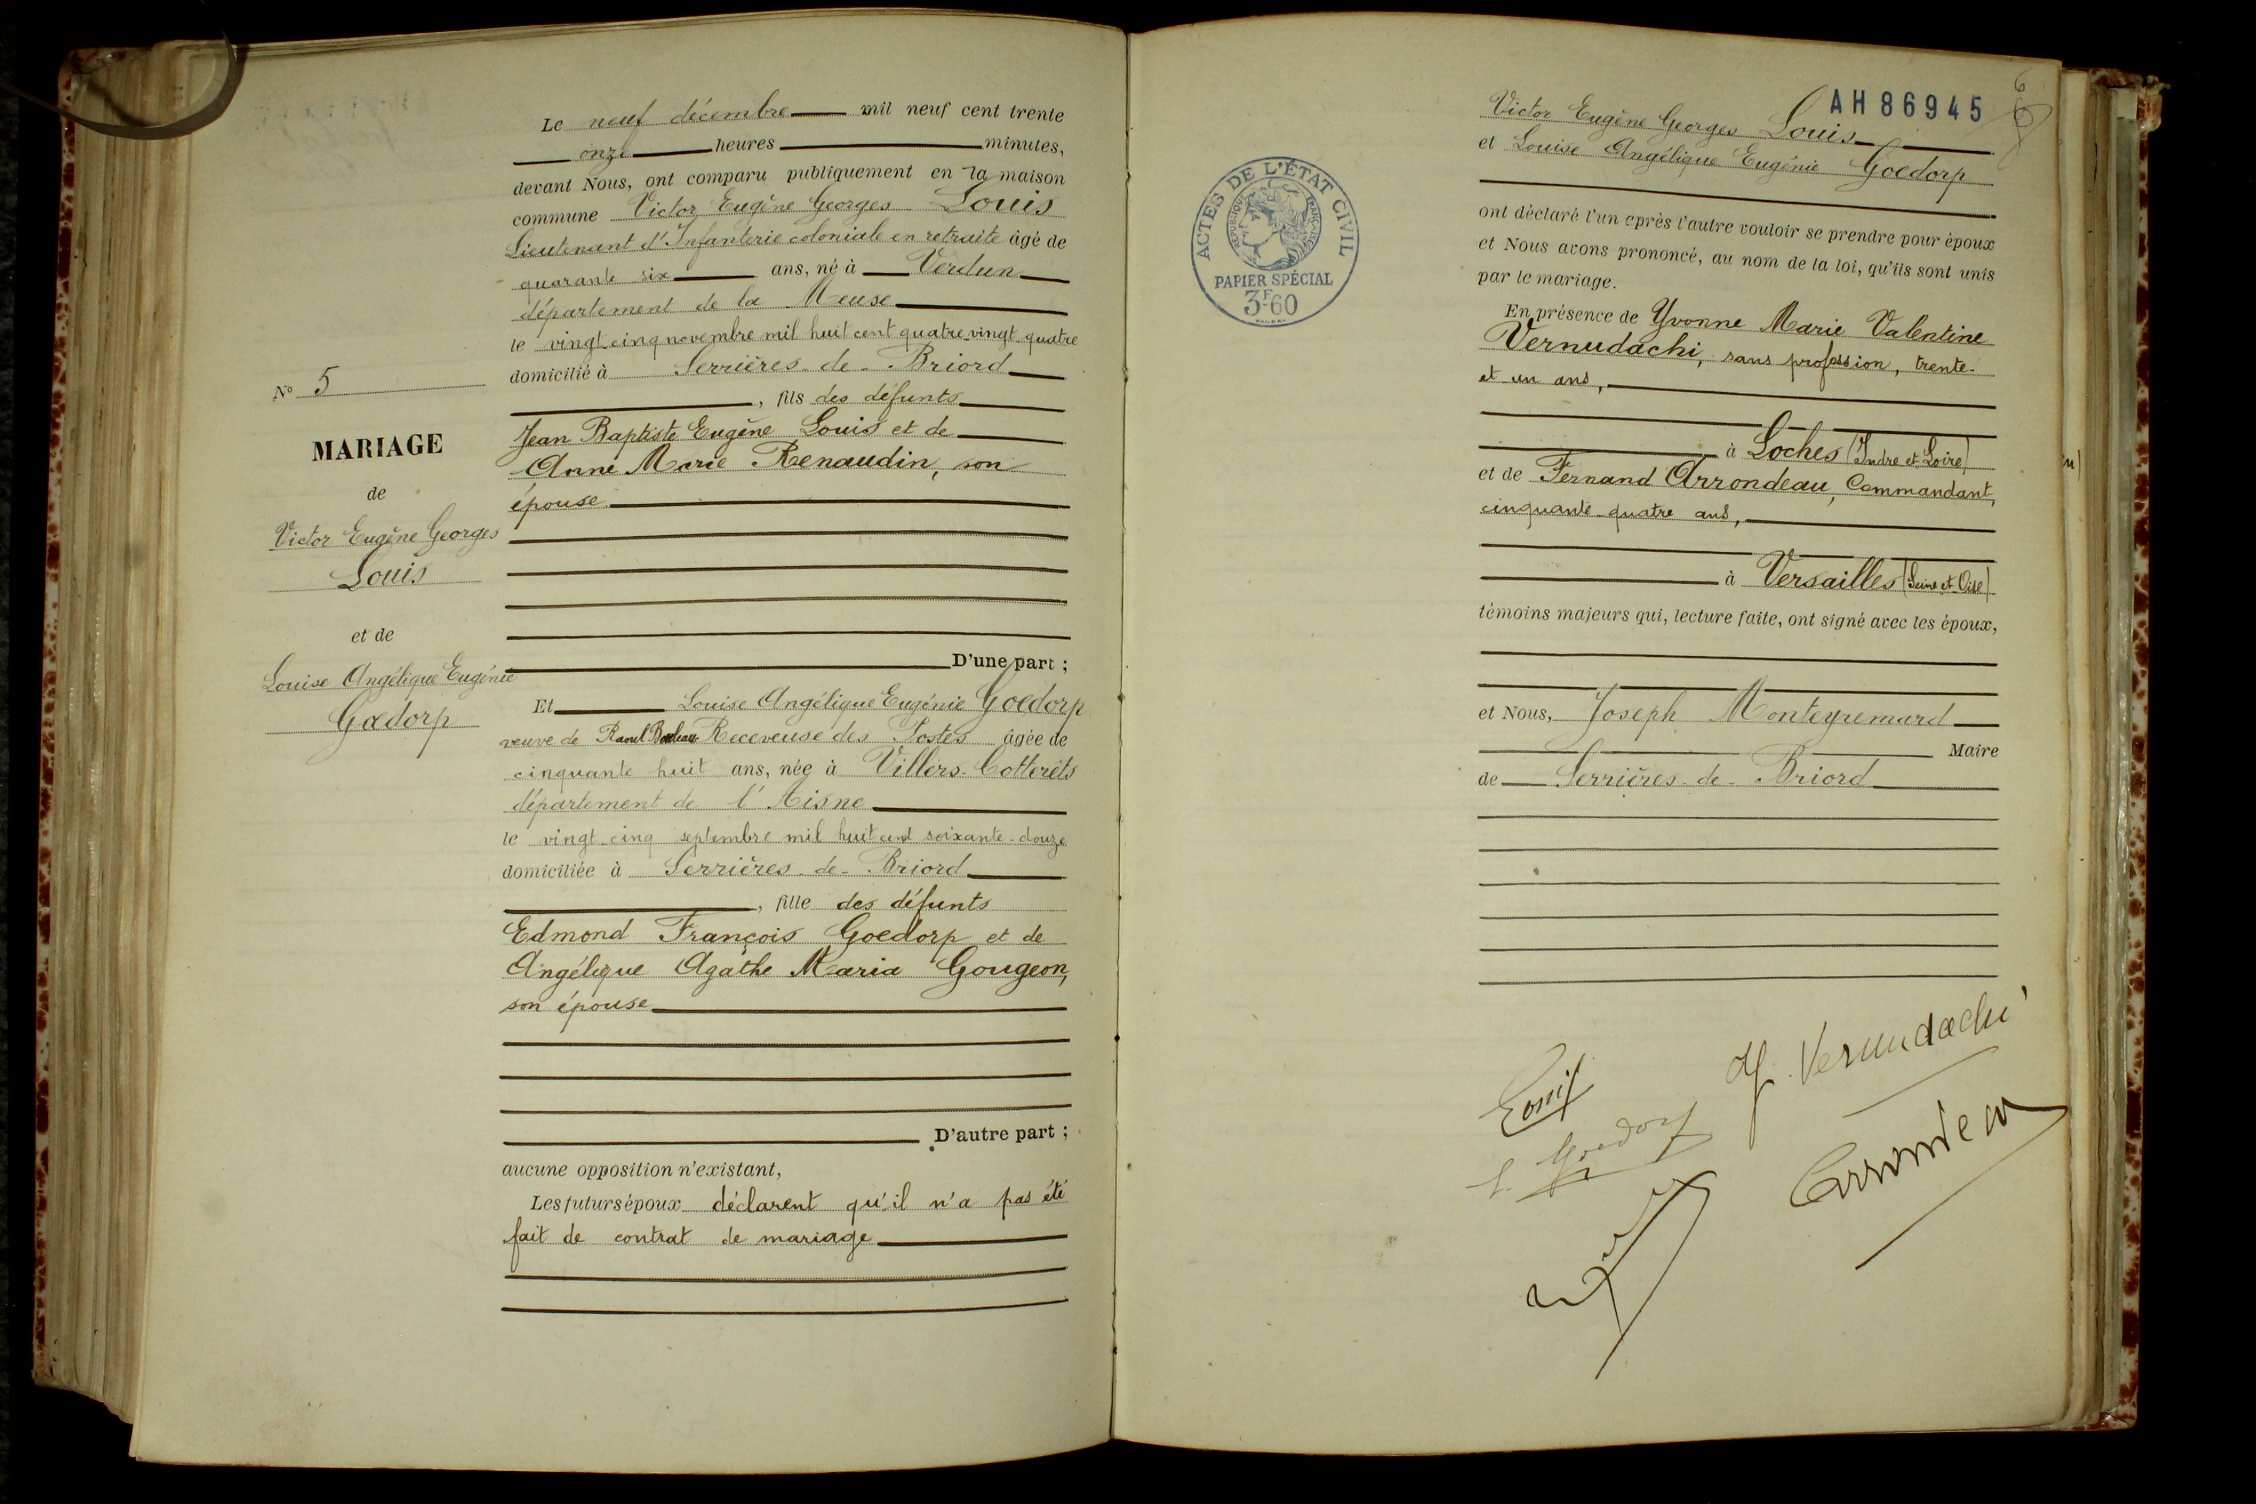 Le neuf décembre mil neuf cent trente
onze heures minutes,
devant Nous, ont comparu publiquement en la maison
commune Victor Eugène Georges Louis
Lieutenant d'Infanterie coloniale en retraite âgé de
quarante six ans, né à Verdun
département de la Meuse
le vingt-cinq novembre mil huit cent quatre-vingt quatre
domicilié à Serrières-de-Briord
, fils des défunts
Jean Baptiste Eugène Louis et de
Anne Marie Renaudin, son
épouse
No 5
MARIAGE
de
Victor Eugène Georges
Louis
et de
Louise Angélique Eugénie
Goedorp
D'une part ;
Et Louise Angélique Eugénie Goedorp
veuve de Raoul Receveuse des Postes âgée de
cinquante huit ans, née à Villers-Cotterêts
département de l'Aisne
le vingt-cinq septembre mil huit cent soixante-douze
domiciliée à Serrières-de-Briord
, fille des défunts
Edmond François Goedorp et de
Angélique Agathe Maria Gougeon,
son épouse
D'autre part ;
aucune opposition n'existant,
Les futurs époux déclarent qu'il n'a pas été
fait de contrat de mariage
AH 86945
Victor Eugène Georges Louis
et Louise Angélique Eugénie Goedorp
ACTES DE L'ÉTAT CIVIL
RÉPUBLIQUE FRANÇAISE
PAPIER SPÉCIAL
3F60
ont déclaré l'un après l'autre vouloir se prendre pour époux
et Nous avons prononcé, au nom de la loi, qu'ils sont unis
par le mariage.
En présence de Yvonne Marie Valentine
Vernudachi, sans profession, trente-
et un ans,
à Loches (Indre et Loire)
et de Fernand Arrondeau, Commandant,
cinquante-quatre ans,
à Versailles (Seine et Oise)
témoins majeurs qui, lecture faite, ont signé avec les époux,
et Nous, Joseph Monteyremard
Maire
de Serrières-de-Briord
Louis
Y. Vernudachi
L. Goedorp
Arrondeau